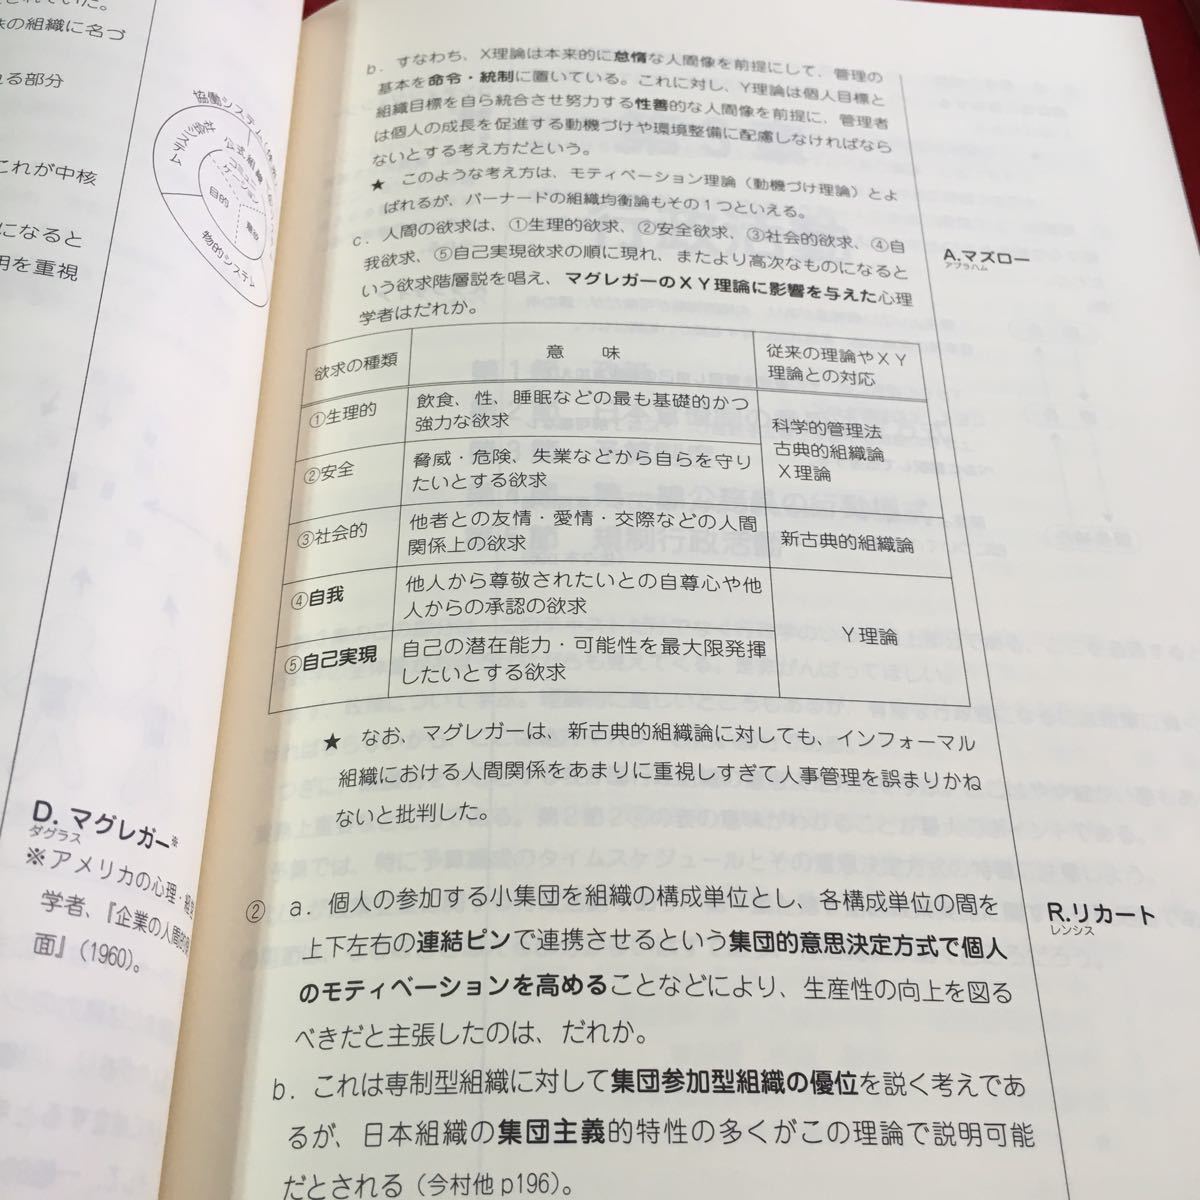 の組織に名づ
る部分
これが中核
になると
明を重視
協働システム
社会システム
公式組織
コミュニケーション
目的
物的システム
D. マグレガー※
ダグラス
※アメリカの心理・経営
学者、『企業の人間的側
面』(1960)。
b．すなわち、X理論は本来的に怠惰な人間像を前提にして、管理の
基本を命令・統制に置いている。これに対し、Y理論は個人目標と
組織目標を自ら統合させ努力する性善的な人間像を前提に、管理者
は個人の成長を促進する動機づけや環境整備に配慮しなければなら
ないとする考え方だという。
★ このような考え方は、モティベーション理論（動機づけ理論）とよ
ばれるが、バーナードの組織均衡論もその１つといえる。
c．人間の欲求は、①生理的欲求、②安全欲求、③社会的欲求、④自
我欲求、⑤自己実現欲求の順に現れ、またより高次なものになると
いう欲求階層説を唱え、マグレガーのＸＹ理論に影響を与えた心理
学者はだれか。
A.マズロー
アブラハム
欲求の種類
意　味
従来の理論やＸＹ
理論との対応
①生理的
飲食、性、睡眠などの最も基礎的かつ
強力な欲求
②安全
脅威・危険、失業などから自らを守り
たいとする欲求
科学的管理法
古典的組織論
Ｘ理論
③社会的
他者との友情・愛情・交際などの人間
関係上の欲求
新古典的組織論
④自我
他人から尊敬されたいとの自尊心や他
人からの承認の欲求
⑤自己実現
自己の潜在能力・可能性を最大限発揮
したいとする欲求
Ｙ理論
★ なお、マグレガーは、新古典的組織論に対しても、インフォーマル
組織における人間関係をあまりに重視しすぎて人事管理を誤まりかね
ないと批判した。
② a．個人の参加する小集団を組織の構成単位とし、各構成単位の間を
上下左右の連結ピンで連携させるという集団的意思決定方式で個人
のモティベーションを高めることなどにより、生産性の向上を図る
べきだと主張したのは、だれか。
R.リカート
レンシス
b．これは専制型組織に対して集団参加型組織の優位を説く考えであ
るが、日本組織の集団主義的特性の多くがこの理論で説明可能
だとされる（今村他p196）。